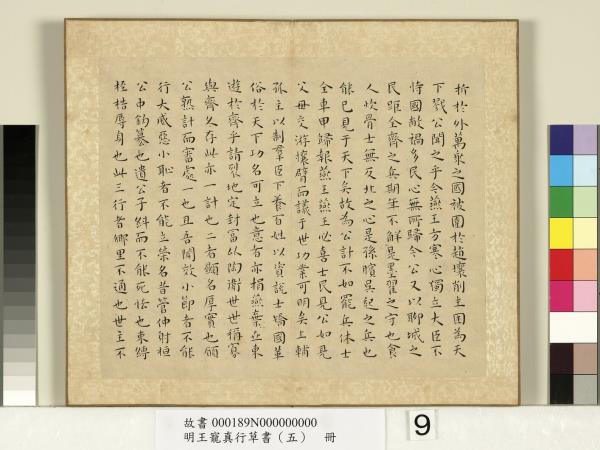 折於外萬乘之國被圍於趙壤削主困為天
下戮公聞之乎今燕王方寒心獨立大臣不
恃國敝禍多民心無所歸今公又以聊城之
民距全齊之兵期年不解是墨翟之守也食
人炊骨士無反北之心是孫臏吳起之兵也
能已見于天下矣故為公計不如罷兵休士
全車甲歸報燕王燕王必喜士民見公如見
父母交游攘臂而議于世功業可明矣上輔
孤主以制羣臣下養百姓以資說士矯國革
俗於天下功名可立也意者亦捐燕棄世東
遊於齊乎請裂地定封富比陶衛世世稱寡
與齊久存此亦一計也二者顯名厚實也願
公熟計而審處一也且吾聞效小節者不能
行大威惡小恥者不能立榮名昔管仲射桓
公中鉤篡也遺公子糾而不能死怯也束縛
桎梏辱身也此三行者鄉里不通也世主不
故書 000189N000000000
明王寵真行草書（五） 冊
9